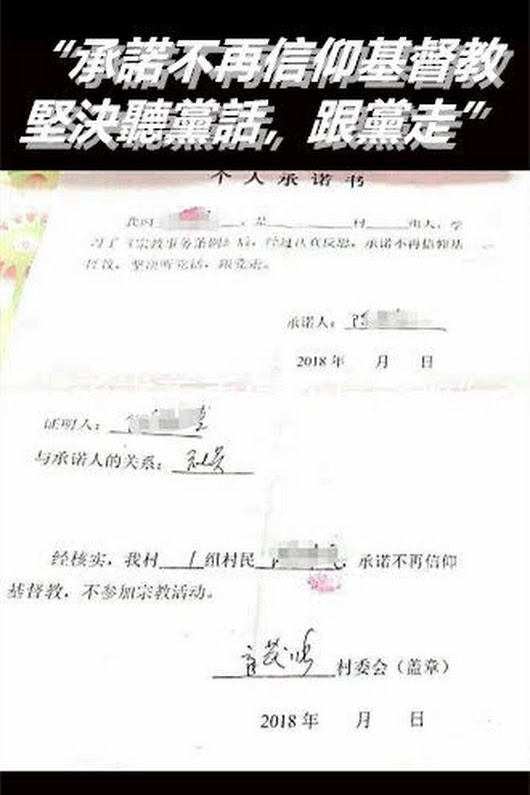 “承諾不再信仰基督教
堅決聽黨話，跟黨走”
个人承诺书
我叫 ，是 村 ，学
习了《宗教事务条例》后，经过认真反思，承诺不再信仰基
督教，坚决听党话，跟党走。
承诺人：
2018年 月 日
证明人：
与承诺人的关系：
经核实，我村 1 组村民 ，承诺不再信仰
基督教，不参加宗教活动。
村委会（盖章）
2018年 月 日